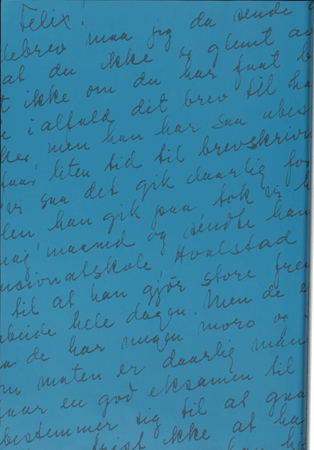 Felix!
debrev maa jeg da sende
at du ikke er glemt av
t ikke om du har faat b
e ialfald det brev til ha
men han har saa uber
liten tid til brevskrivn
vi saa det gik daarlig for
len han gik paa tok vi h
mai maaned og sendte ham
nsionatskole Hvalstad
til at han gjør store frem
beide hele dagen. Men de e
a de har nogen moro og
om maten er daarlig
aar en god eksamen til
bestemmer sig til at gaa
ikke at ha